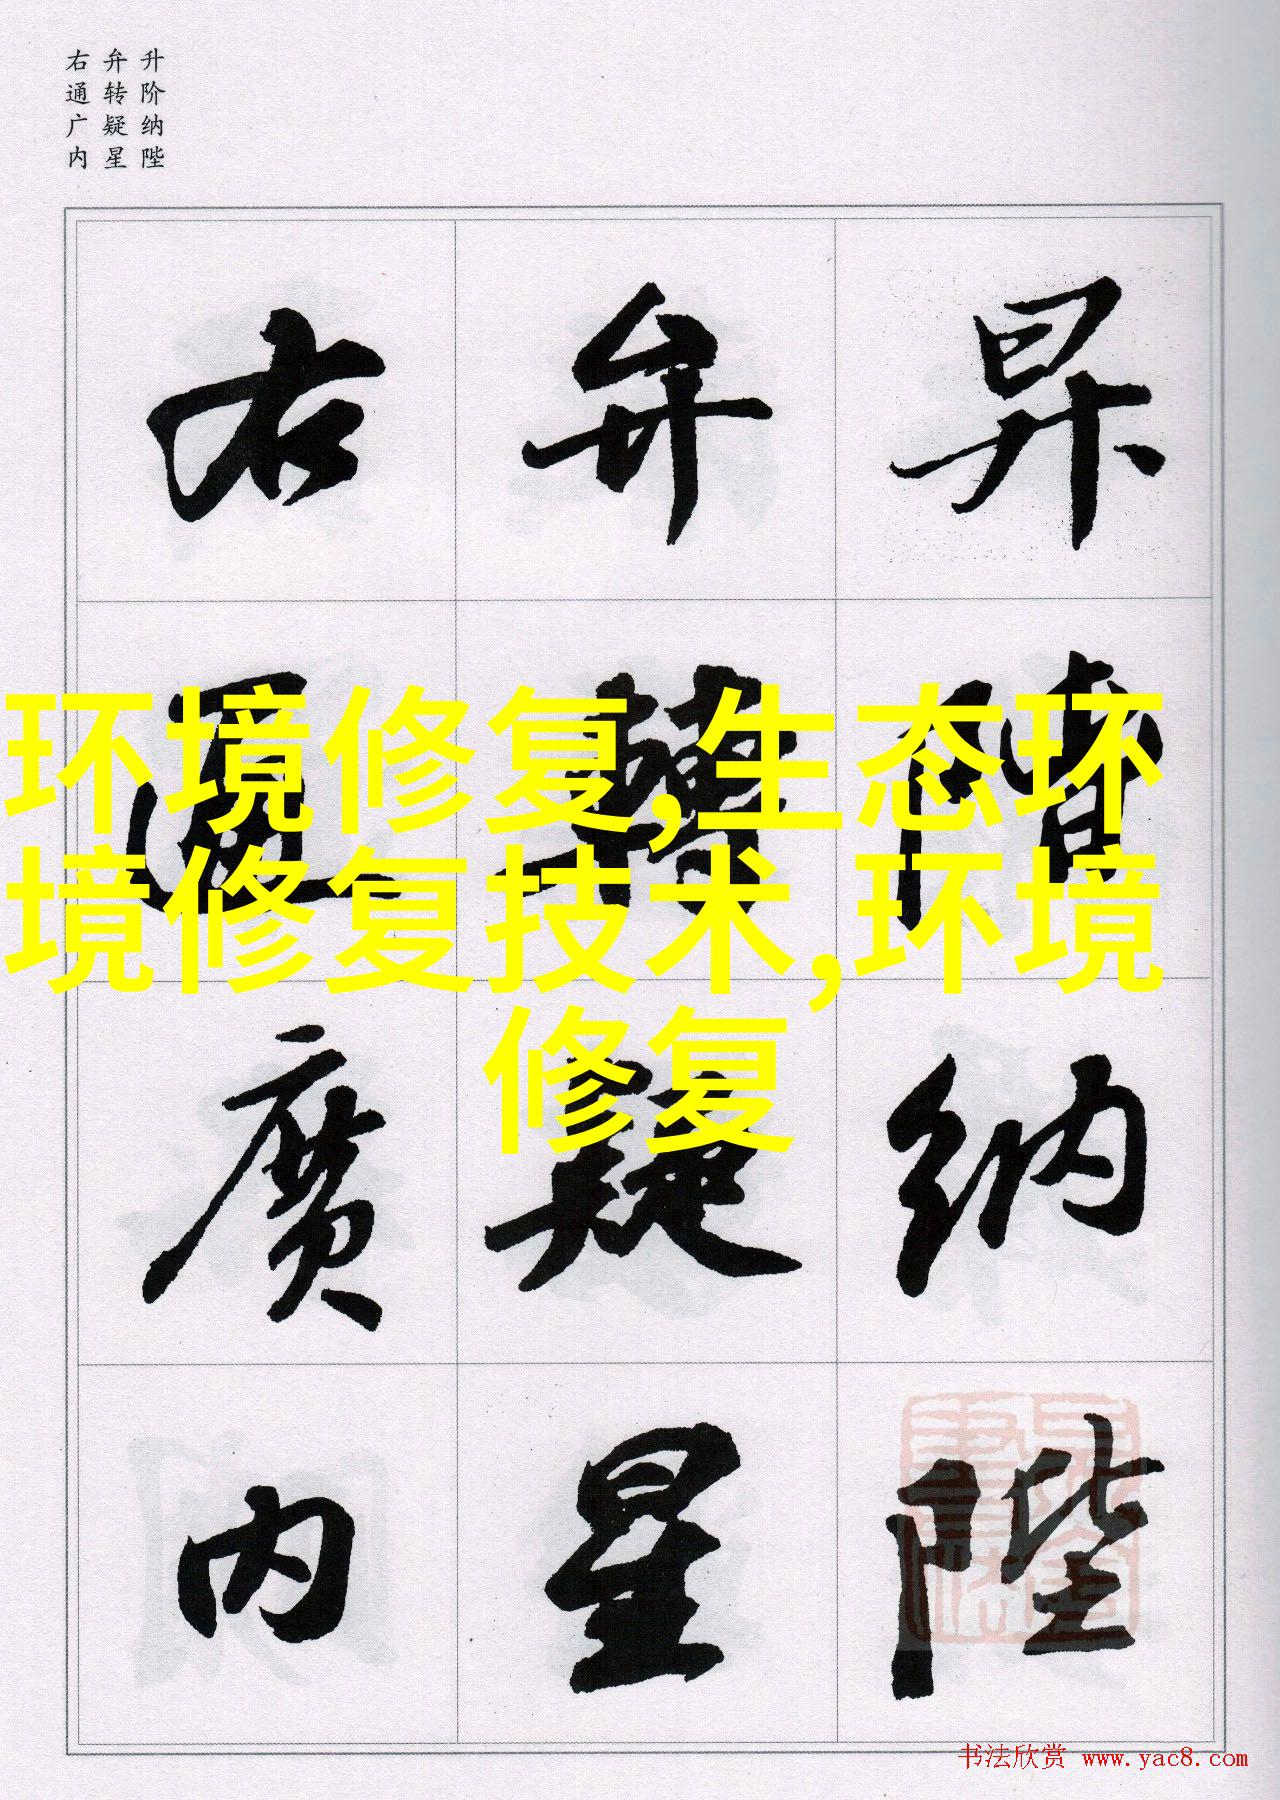 升阶纳陛
弁转疑星
右通广内
昇階納陛
弁轉疑星
右通廣内
环境修复,生态环
境修复技术,环境
修复
书法欣赏 www.yac8.com